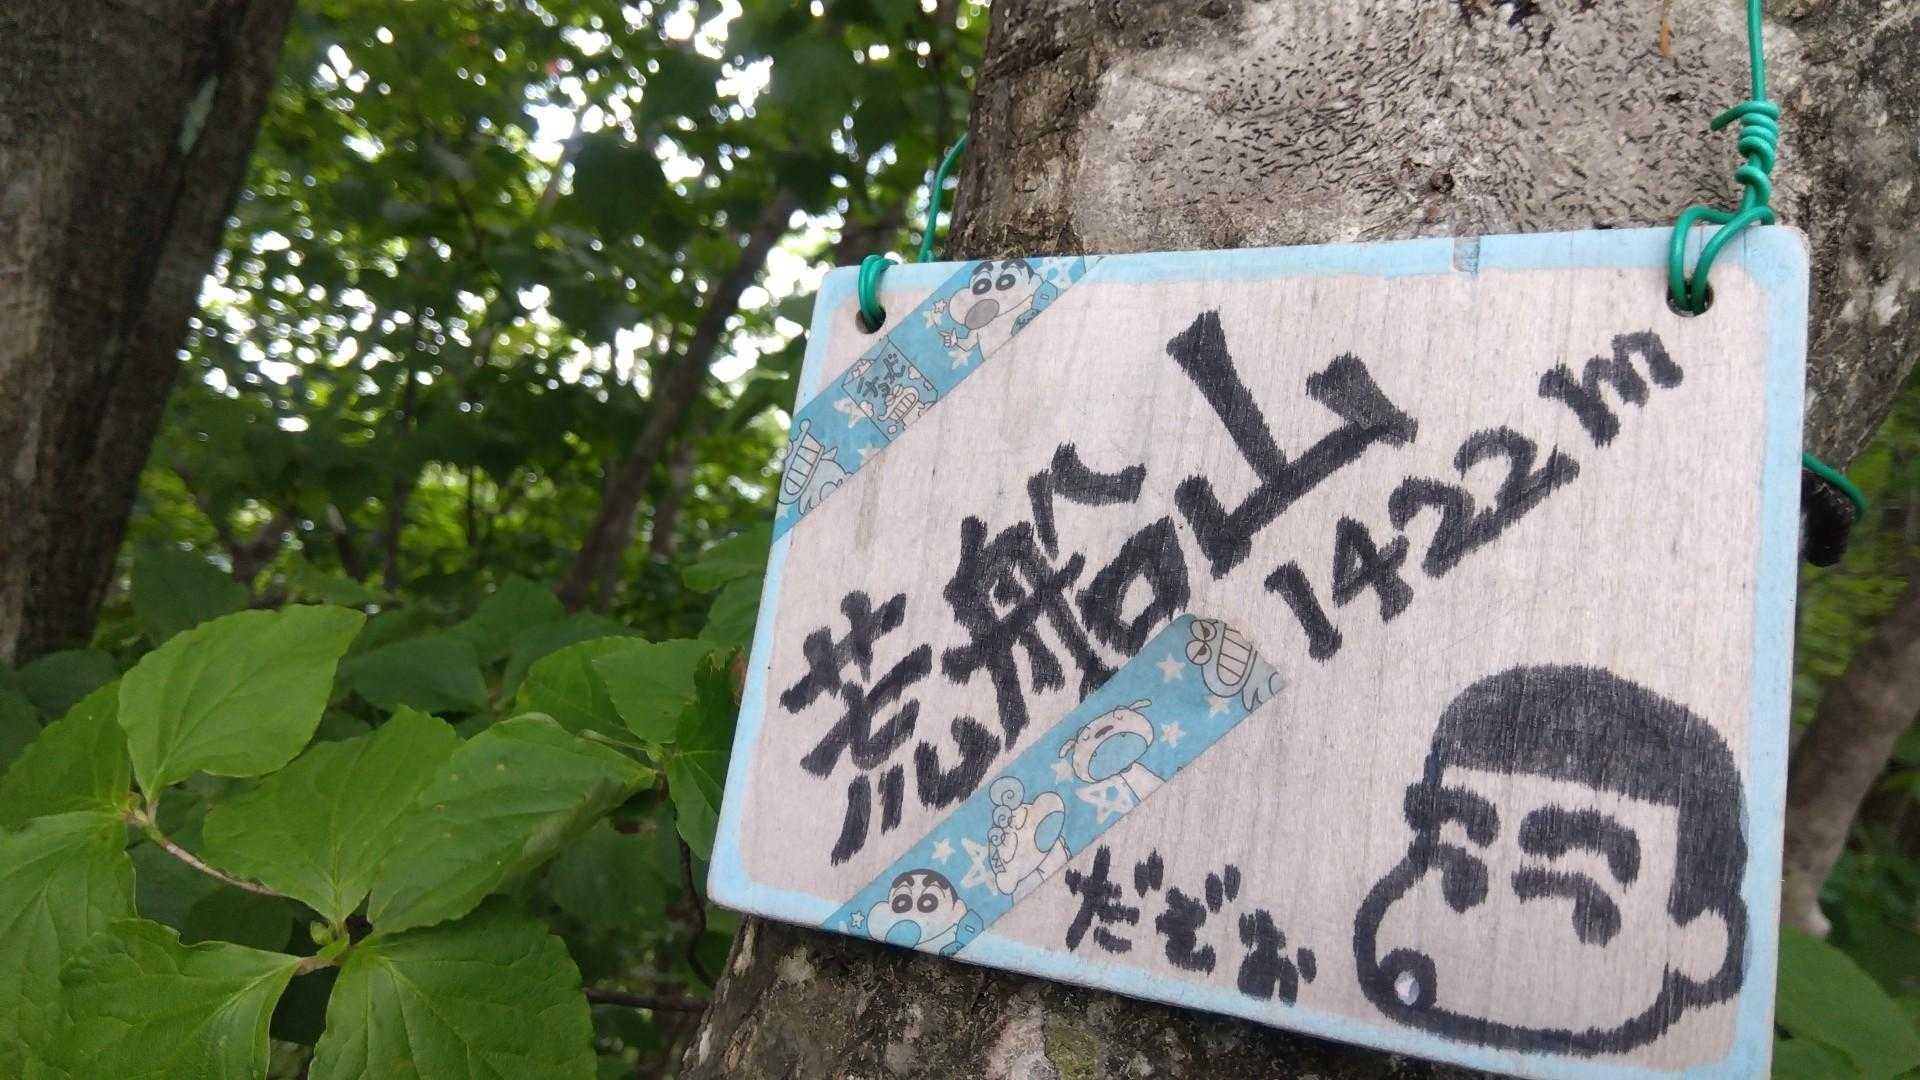 荒船山
1422m
だぞお